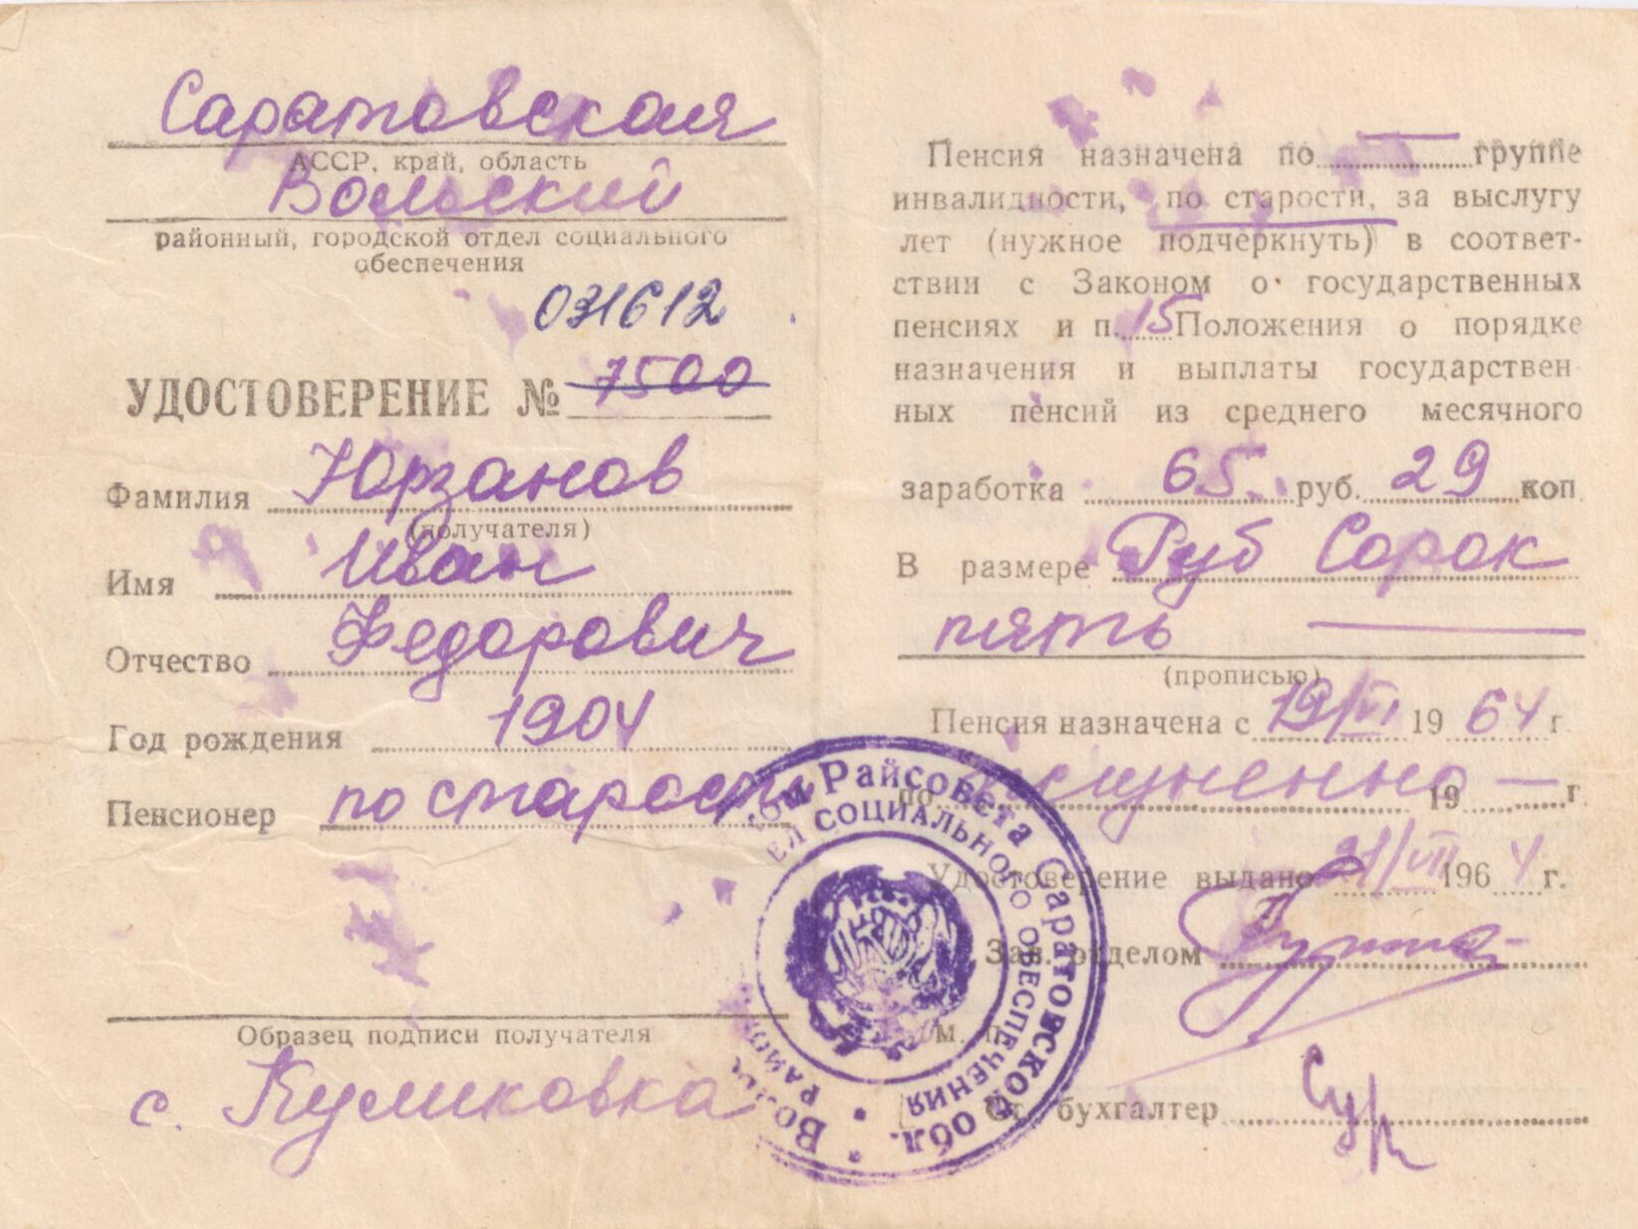 Саратовская
АССР, край, область
Вольский
районный, городской отдел социального
обеспечения
031612
УДОСТОВЕРЕНИЕ № 7500
Фамилия Юрзанов
(получателя)
Имя Иван
Отчество Федорович
Год рождения 1904
Пенсионер по старости
Образец подписи получателя
с. Куликовка
Пенсия назначена по — группе
инвалидности, по старости, за выслугу
лет (нужное подчеркнуть) в соответ-
ствии с Законом о государственных
пенсиях и п. 15 Положения о порядке
назначения и выплаты государствен-
ных пенсий из среднего месячного
заработка 65 руб. 29 коп
В размере Руб Сорок
пять —
(прописью)
Пенсия назначена с 19/VI 1964 г
по жизненно — 19 г
Удостоверение выдано 21/VII 1964 г.
Зав. отделом
м. п.
Ст. бухгалтер Сур
Райсовета Саратовской обл.
СОЦИАЛЬНОГО ОБЕСПЕЧЕНИЯ